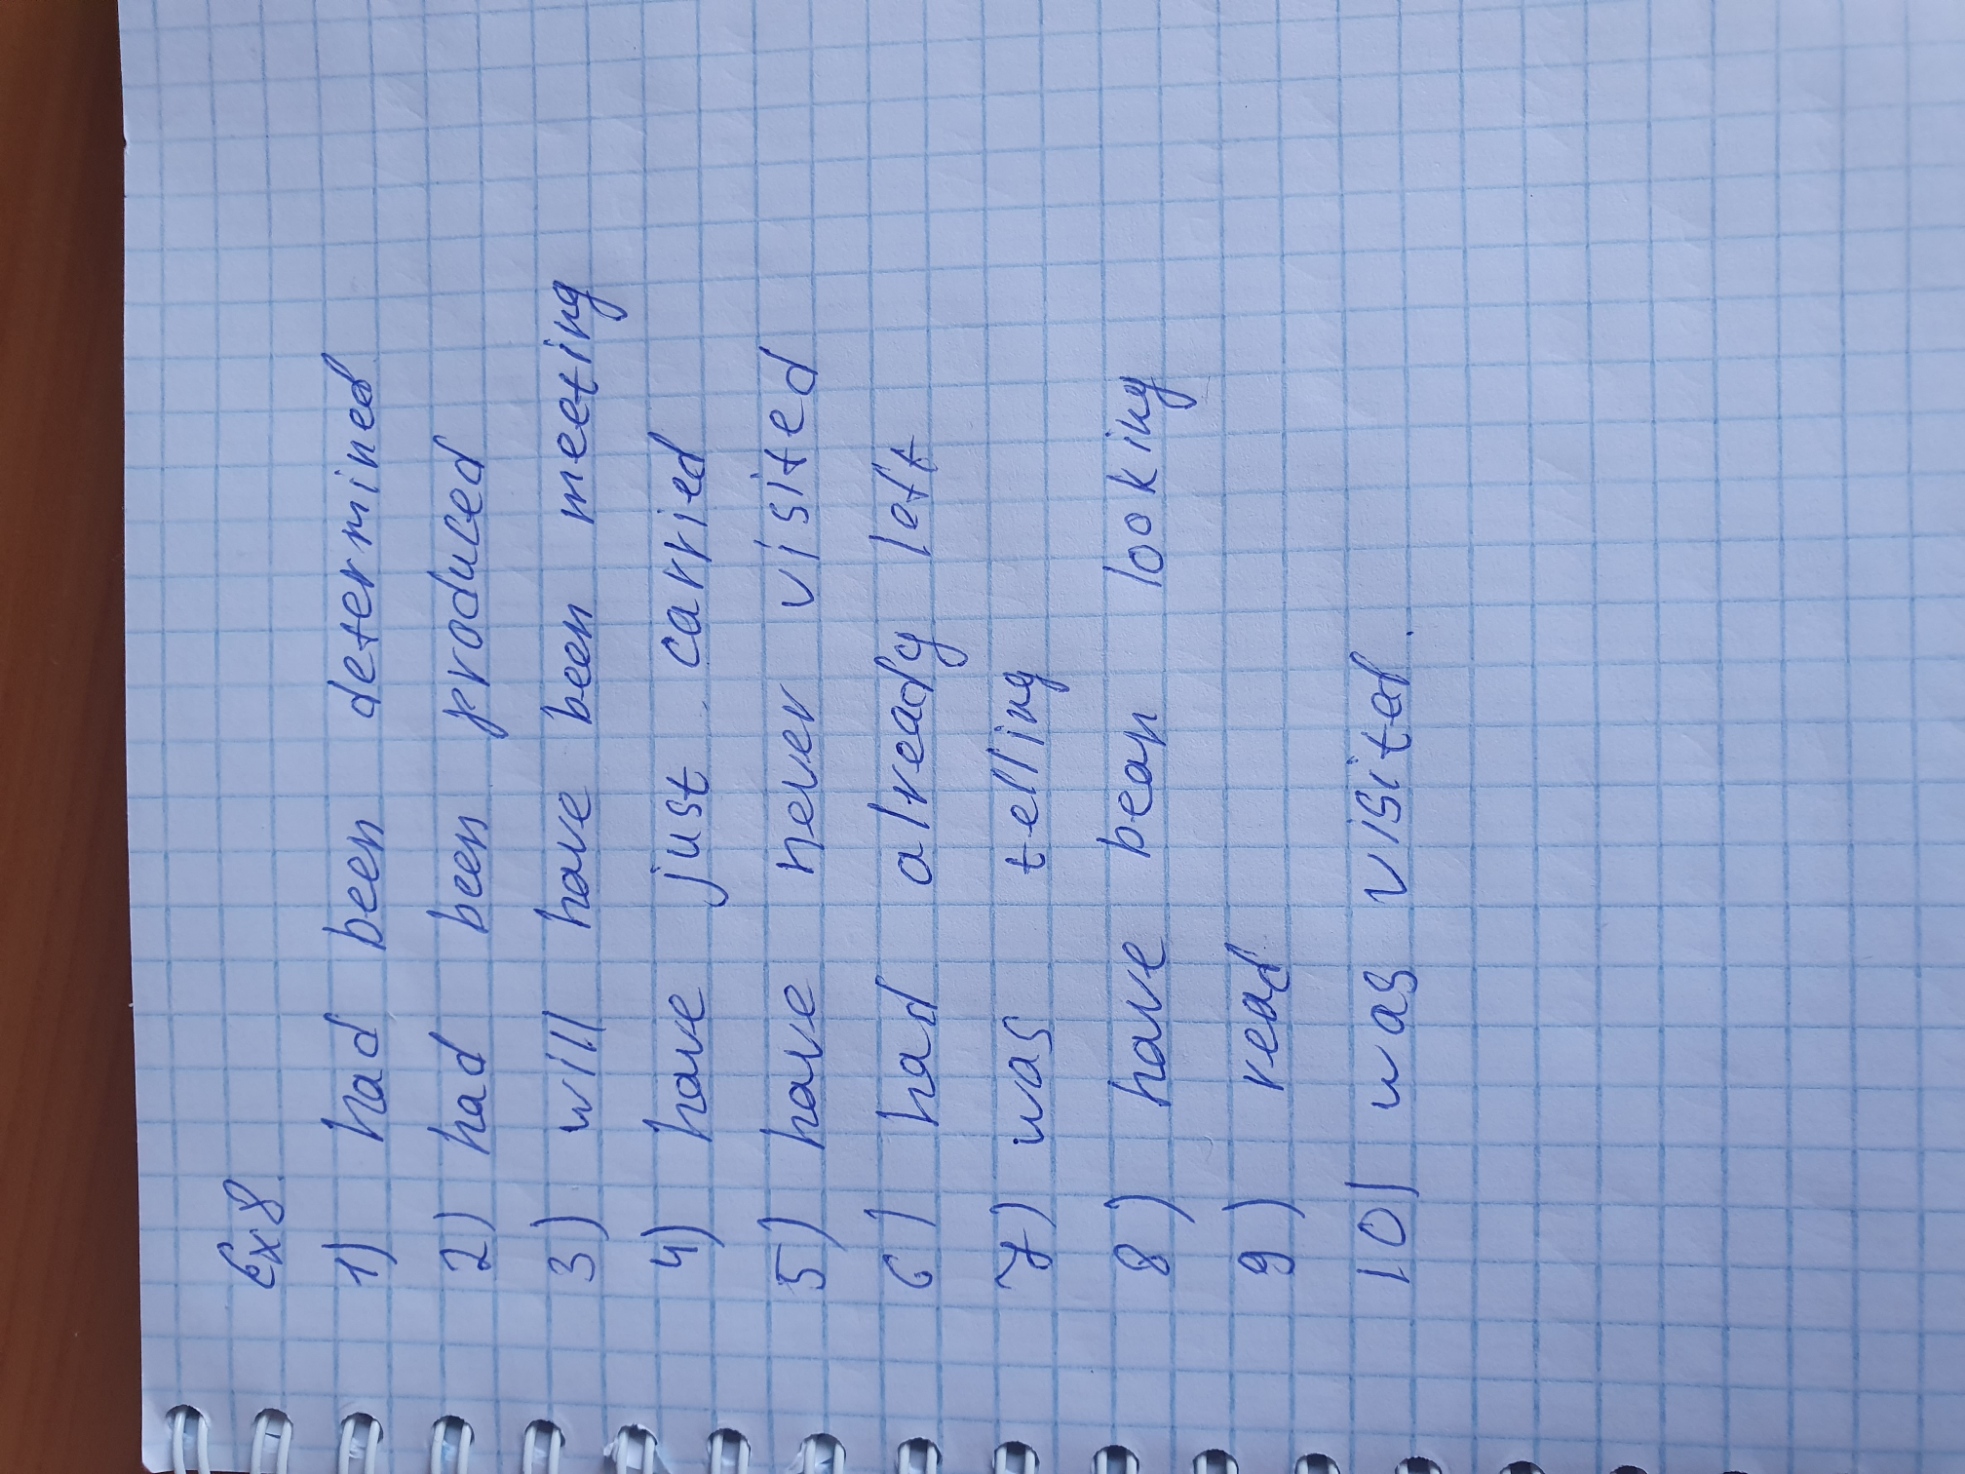 Ex8.
1) had been determined
2) had been produced
3) will have been meeting
4) have just carried
5) have never visited
6) had already left
7) was telling
8) have bean looking
9) read
10) was visited.